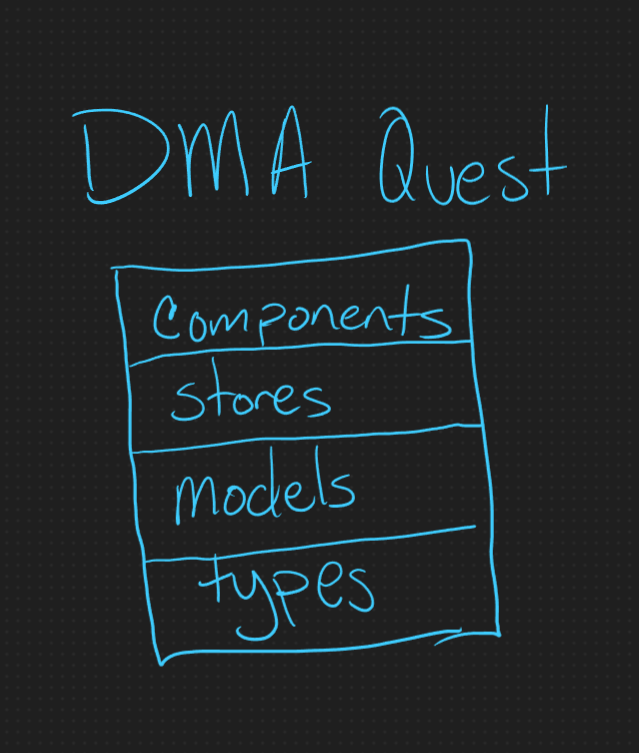 DMA Quest
Components
Stores
Models
types